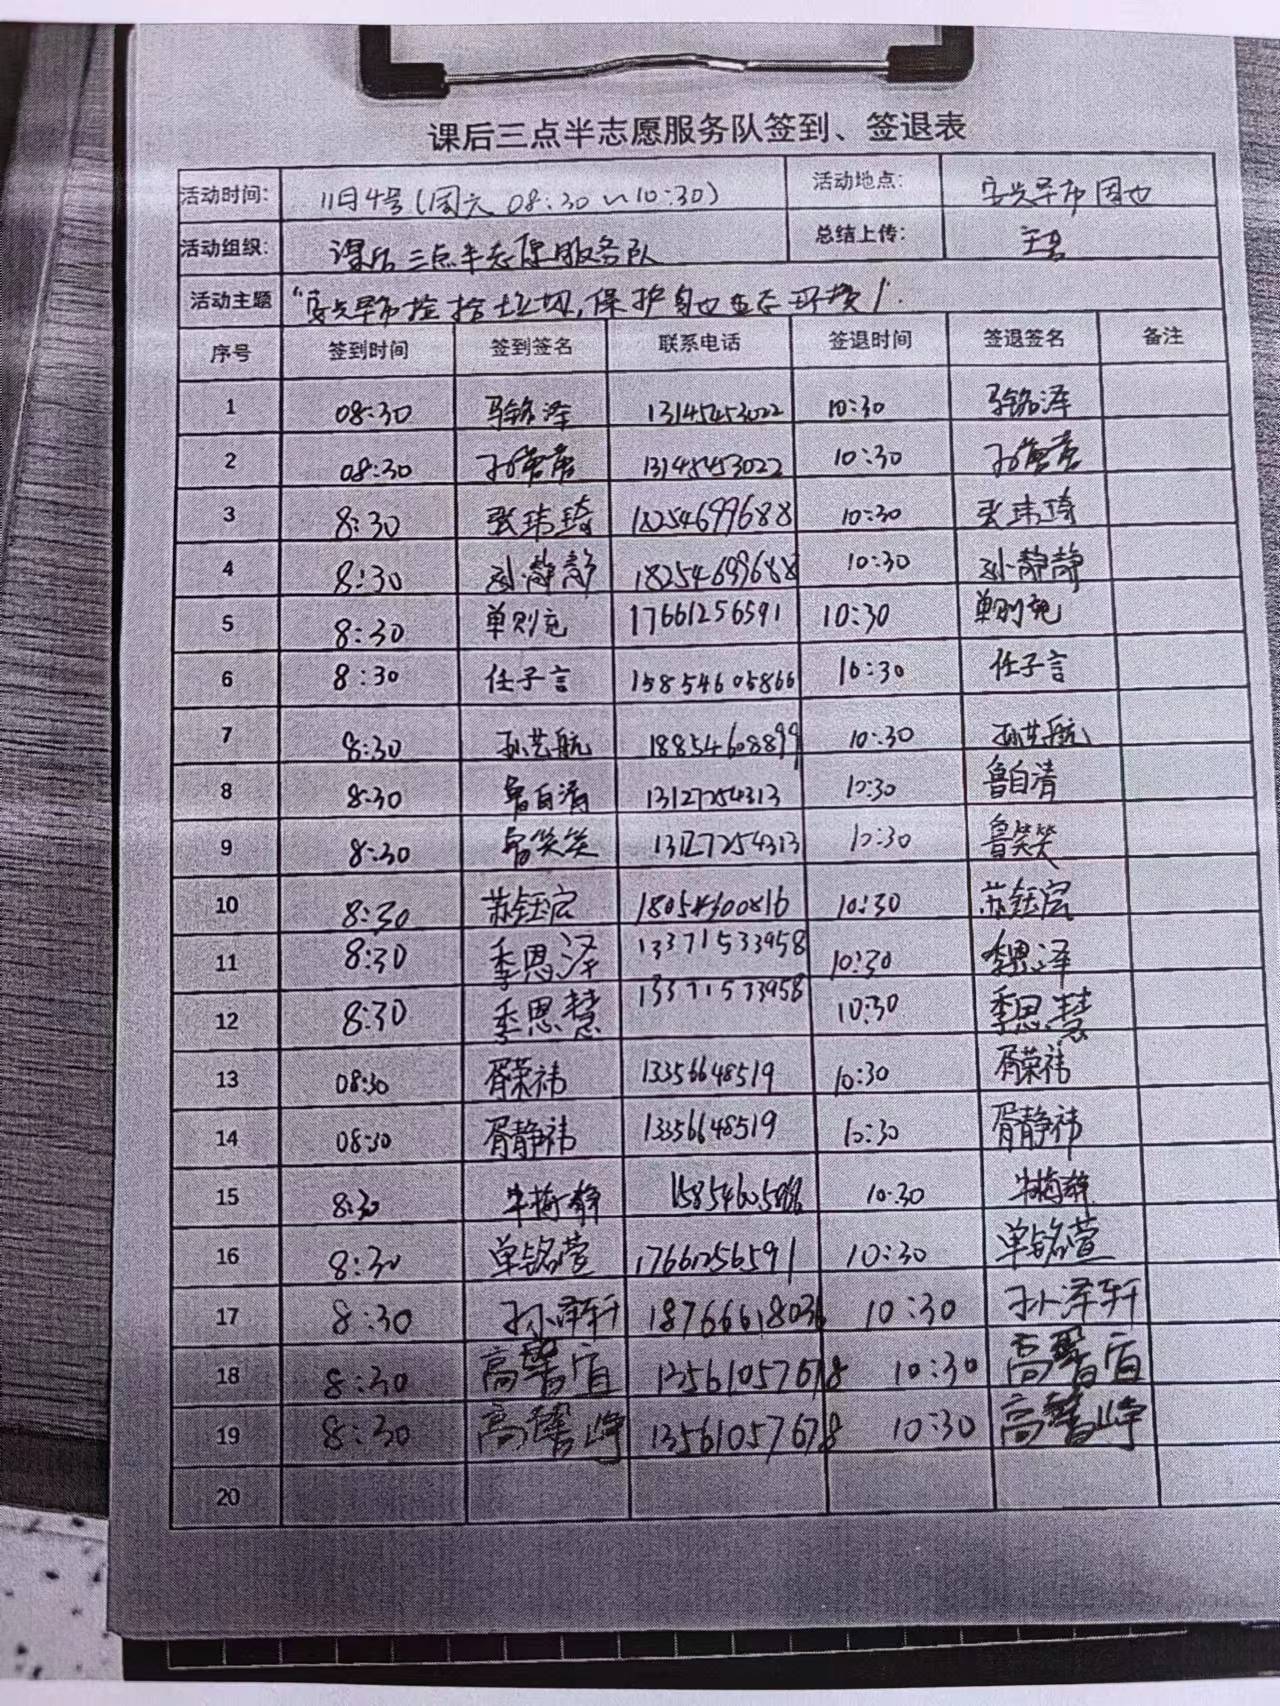 课后三点半志愿服务队签到、签退表
活动时间: 11月4号(周六 08:30~10:30) 活动地点: 安兴早市周边
活动组织: 课后三点半志愿服务队 总结上传:
活动主题 "安兴早市捡拾垃圾,保护身边生态环境!
序号 签到时间 签到签名 联系电话 签退时间 签退签名 备注
1 08:30 马铭泽 13145453022 10:30 马铭泽
2 08:30 13145453022 10:30
3 8:30 张玮琦 18254699688 10:30 张玮琦
4 8:30 孙静静 18254699688 10:30 孙静静
5 8:30 单则尧 17661256591 10:30 单则尧
6 8:30 任子言 15854605866 10:30 任子言
7 8:30 孙艺航 18854608899 10:30 孙艺航
8 8:30 鲁自清 13127254313 10:30 鲁自清
9 8:30 鲁笑笑 13127254313 10:30 鲁笑笑
10 8:30 苏钰宸 18054600816 10:30 苏钰宸
11 8:30 季恩泽 13371533958 10:30 季恩泽
12 8:30 季思慧 13371533958 10:30 季思慧
13 08:30 胥荣祎 13356648519 10:30 胥荣祎
14 08:30 胥静祎 13356648519 10:30 胥静祎
15 8:30 牛梅静 10:30 牛梅静
16 8:30 单铭萱 17661256591 10:30 单铭萱
17 8:30 孙泽轩 18766618036 10:30 孙泽轩
18 8:30 高馨宜 13561057678 10:30 高馨宜
19 8:30 高馨峥 13561057678 10:30 高馨峥
20